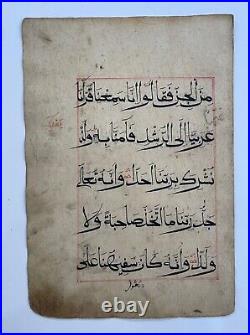 مِنَ الْجِنِّ فَقَالُوا إِنَّا سَمِعْنَا قُرْآنًا
عَرَبِيًّا إِلَى الرُّشْدِ فَآمَنَّا بِهِ وَانَا
نُشْرِكَ بِرَبِّنَا أَحَدًا وَأَنَّهُ تَعَالَى
جَدُّ رَبِّنَا مَا اتَّخَذَ صَاحِبَةً وَلَا
وَلَدًا وَأَنَّهُ كَانَ سَفِيهُنَا عَلَى